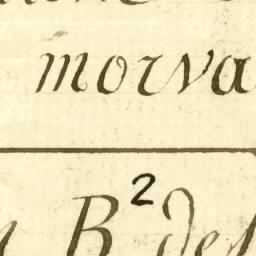 morva
B² des